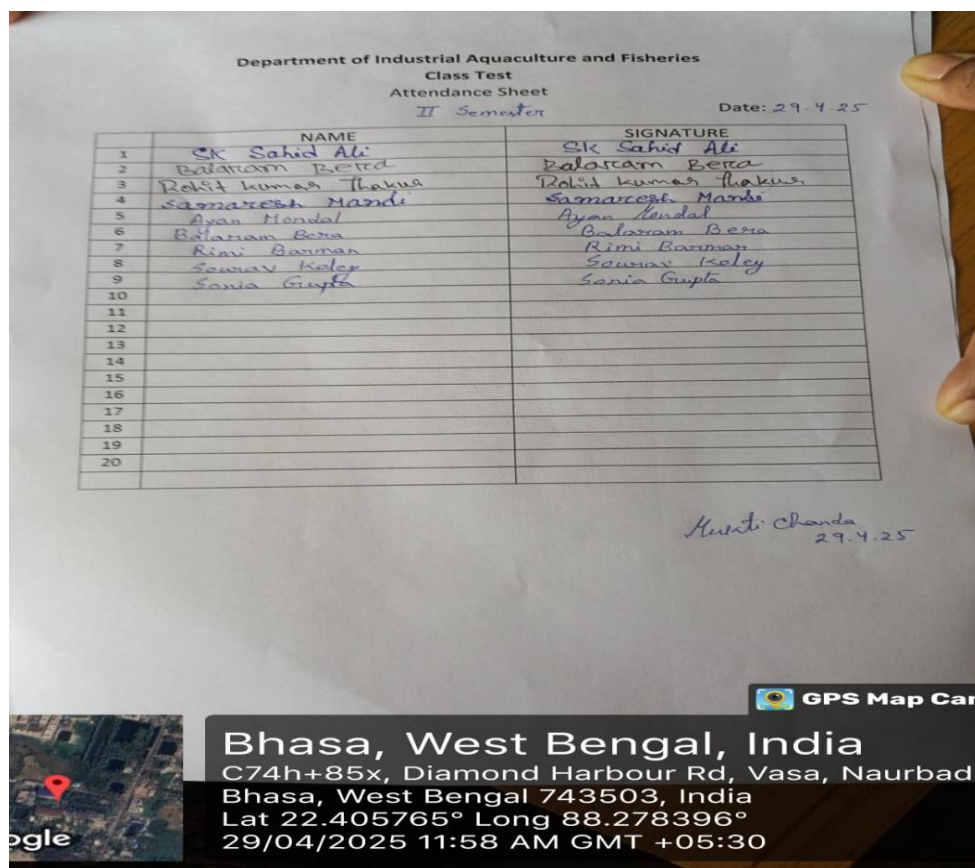 Department of Industrial Aquaculture and Fisheries
Class Test
Attendance Sheet
II Semester Date: 29.4.25
NAME SIGNATURE
1 SK Sahid Ali SK Sahid Ali
2 Balaram Bera Balaram Bera
3 Rohit kumar Thakur Rohit kumar Thakur
4 Samaresh Mandi Samaresh Mandi
5 Ayan Mondal Ayan Mondal
6 Balaram Bera Balaram Bera
7 Rimi Barman Rimi Barman
8 Sourav Koley Sourav Koley
9 Sonia Gupta Sonia Gupta
10
11
12
13
14
15
16
17
18
19
20
Chanda
29.4.25
GPS Map Cam
Bhasa, West Bengal, India
C74h+85x, Diamond Harbour Rd, Vasa, Naurbad
Bhasa, West Bengal 743503, India
Lat 22.405765° Long 88.278396°
29/04/2025 11:58 AM GMT +05:30
ogle